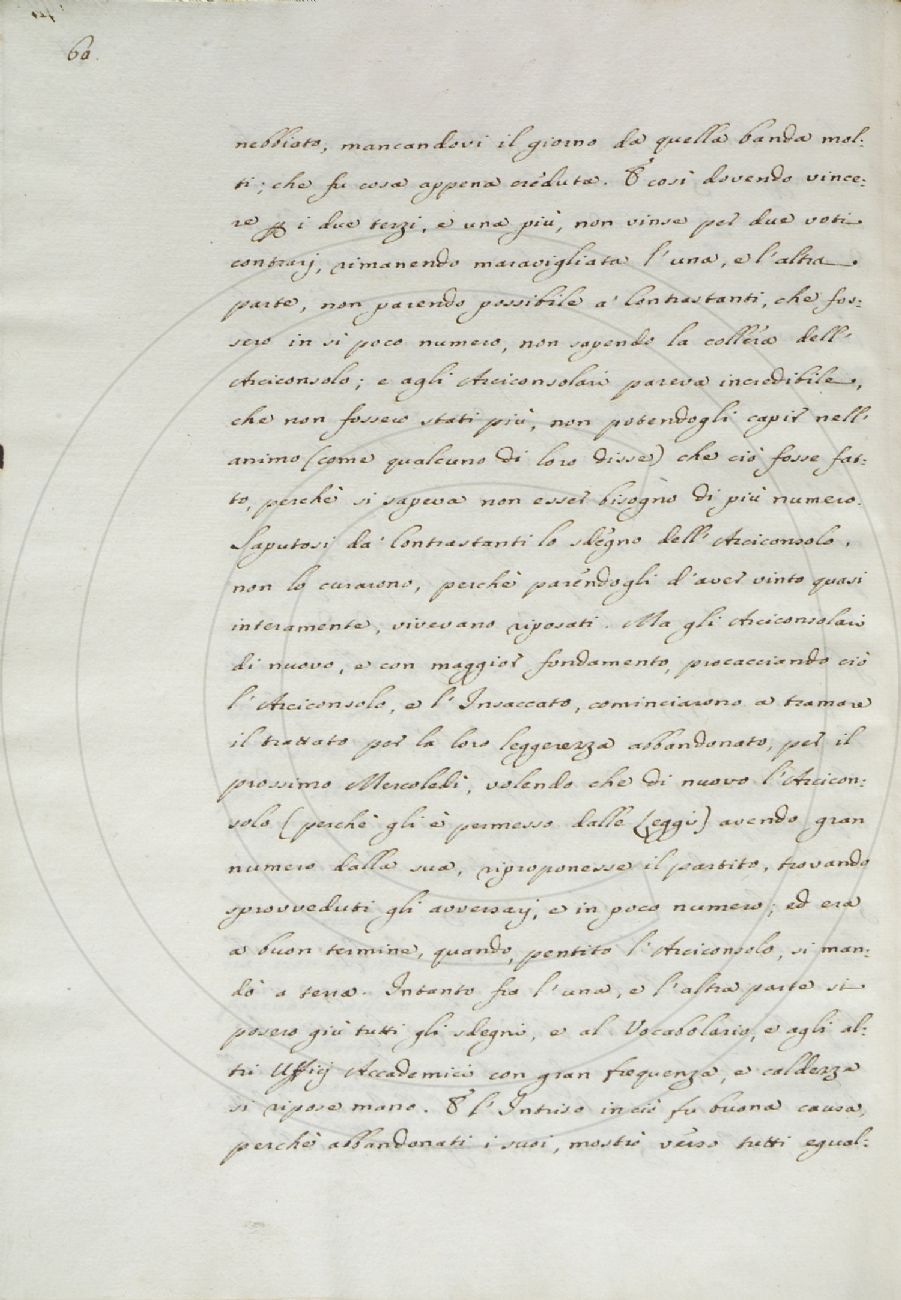 60.
nebbiato, mancandovi il giorno da quella banda mol-
ti; che fu cosa appena creduta. E così dovendo vince-
re p i due terzi, e una più, non vinse per due voti
contrarj, rimanendo maravigliata l'una, e l'altra
parte, non parendo possibile a' Contrastanti, che fos-
sero in si poco numero, non sapendo la collera dell'
Arciconsolo; e agli Arciconsolari pareva incredibile,
che non fossero stati più, non potendogli capir nell'
animo (come qualcuno di loro disse) che ciò fosse fat-
to, perchè si sapeva non esser bisogno di più numero.
Saputosi da' Contrastanti lo sdegno dell'Arciconsolo,
non lo curarono, perchè parendogli d'aver vinto quasi
interamente, vivevano riposati. Ma gli Arciconsolari
di nuovo, e con maggior fondamento, procacciando ciò
l'Arciconsolo, e l'Insaccato, cominciarono a tramare
il trattato per la loro leggerezza abbandonato, per il
prossimo Mercoledì, volendo che di nuovo l'Arcicon-
solo (perchè gli è permesso dalle Leggi) avendo gran
numero dalla sua, riproponesse il partito, trovando
sprovveduti gli avversarj, e in poco numero; ed era
a buon termine, quando, pentito l'Arciconsolo, si man-
dò a terra. Intanto fra l'una, e l'altra parte si
posero giù tutti gli sdegni, e al Vocabolario, e agli al-
tri Uffizj Accademici con gran frequenza, e caldezza
si ripose mano. E l'Intriso in ciò fu buona causa,
perchè abbandonati i suoi, mostrò verso tutti egual-